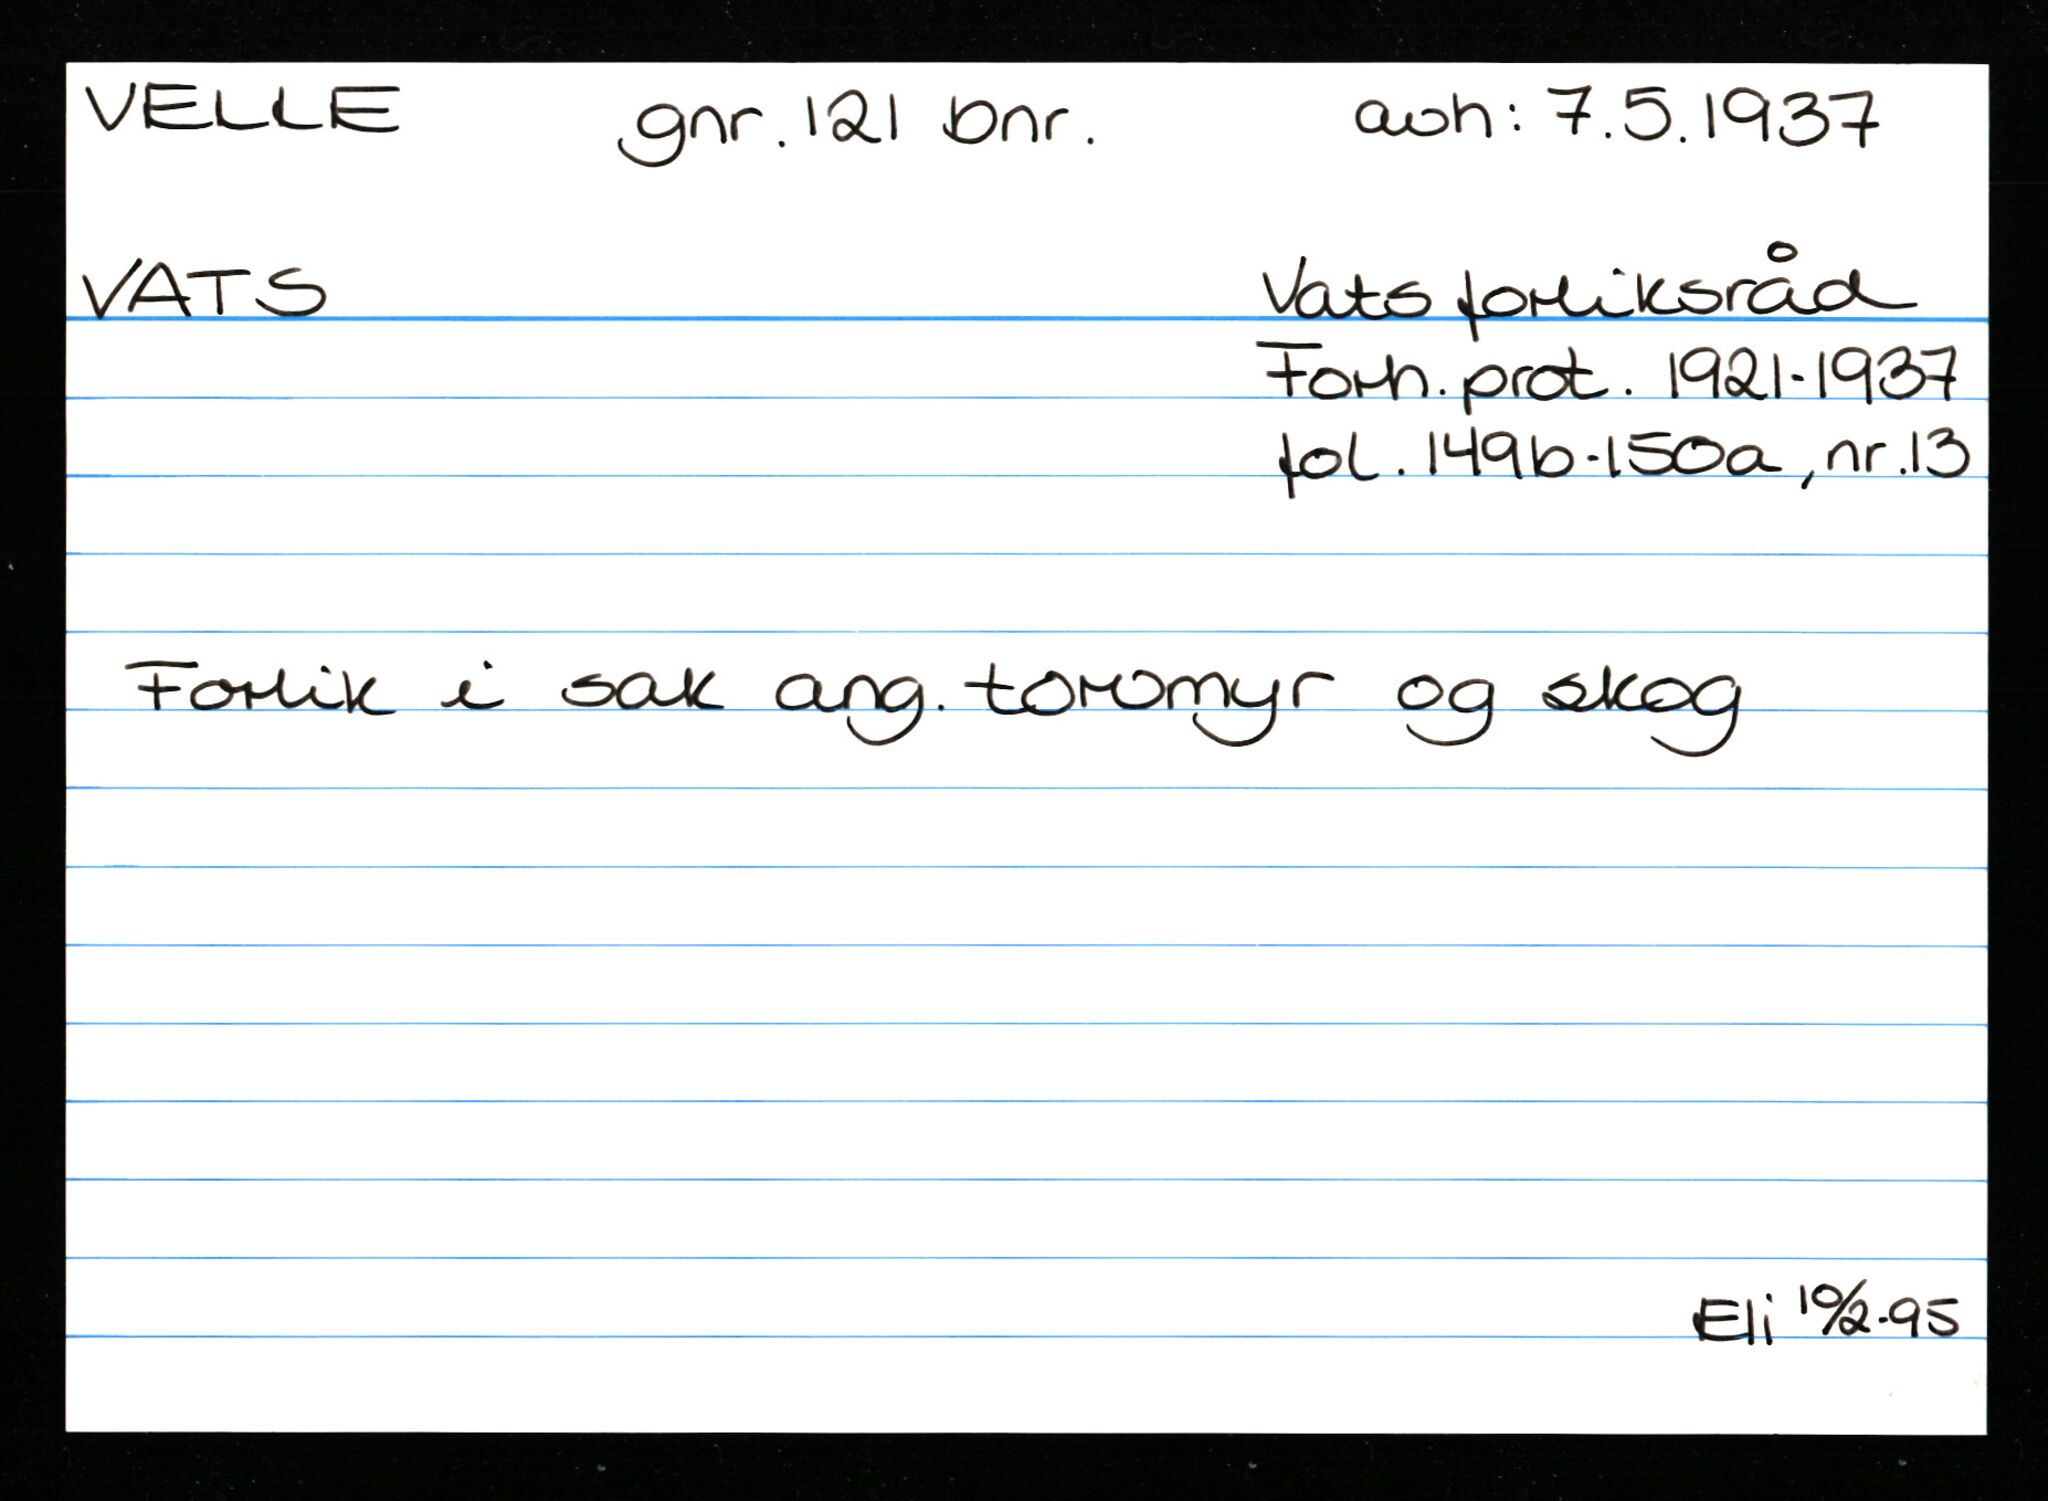 VELLE gnr. 121 bnr. avh: 7.5.1937
VATS Vats forliksråd
Forh. prot. 1921-1937
fol. 149b-150a, nr. 13
Forlik i sak ang. torvmyr og skog
Eli 10/2-95